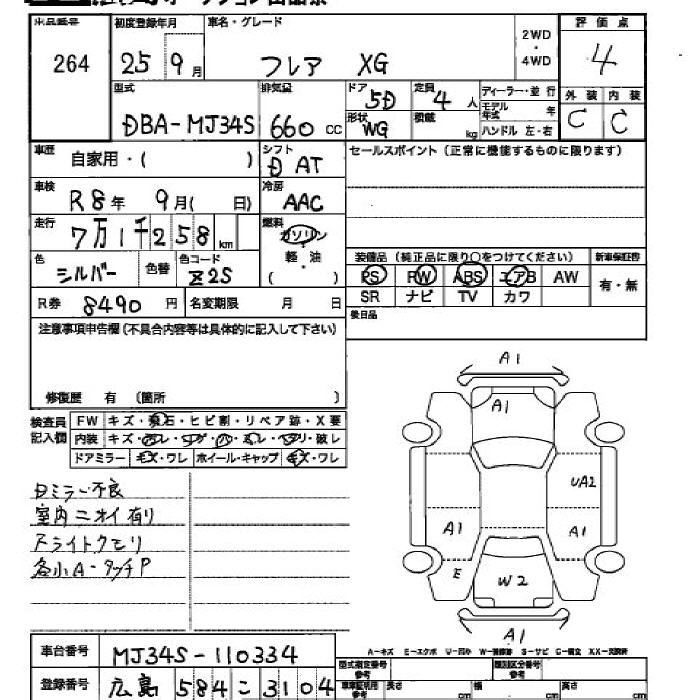 出品番号 264
初度登録年月 25 9月
車名・グレード フレア XG
2WD・4WD
評価点 4
外装 C 内装 C
型式 DBA-MJ34S
排気量 660 cc
ドア 5D
形状 WG
定員 4人
積載 kg
ディーラー・並行
モデル年式 年
ハンドル 左・右
車歴 自家用・( )
シフト D AT
セールスポイント (正常に機能するものに限ります)
車検 R8年 9月( 日)
冷房 AAC
走行 7万1千258km
燃料 ガソリン・軽油 ( )
色 シルバー 色替 色コード Z2S
装備品 (純正品に限り○をつけてください) 新車保証書
PS PW ABS エアB AW 有・無
SR ナビ TV カワ
R券 8490円 名変期限 月 日
後日品
注意事項申告欄(不具合内容等は具体的に記入して下さい)
修復歴 有 (箇所 )
検査員記入欄
FW キズ・飛石・ヒビ割・リペア跡・X要
内装 キズ・
ドアミラー キズ・ワレ ホイール・キャップ キズ・ワレ
Dミラー不良
室内ニオイ有り
ライトクモリ
各小A・タッチP
A1
A1
UA2
A1
A1
E
W2
A1
A-キズ E-エクボ U-凹み W-補修跡 S-サビ C-腐食 XX-交換済
車台番号 MJ34S-110334
登録番号 広島 584 こ 3104
型式指定番号 参考
類別区分番号 参考
車庫証明用 参考 長さ cm 幅 cm 高さ cm